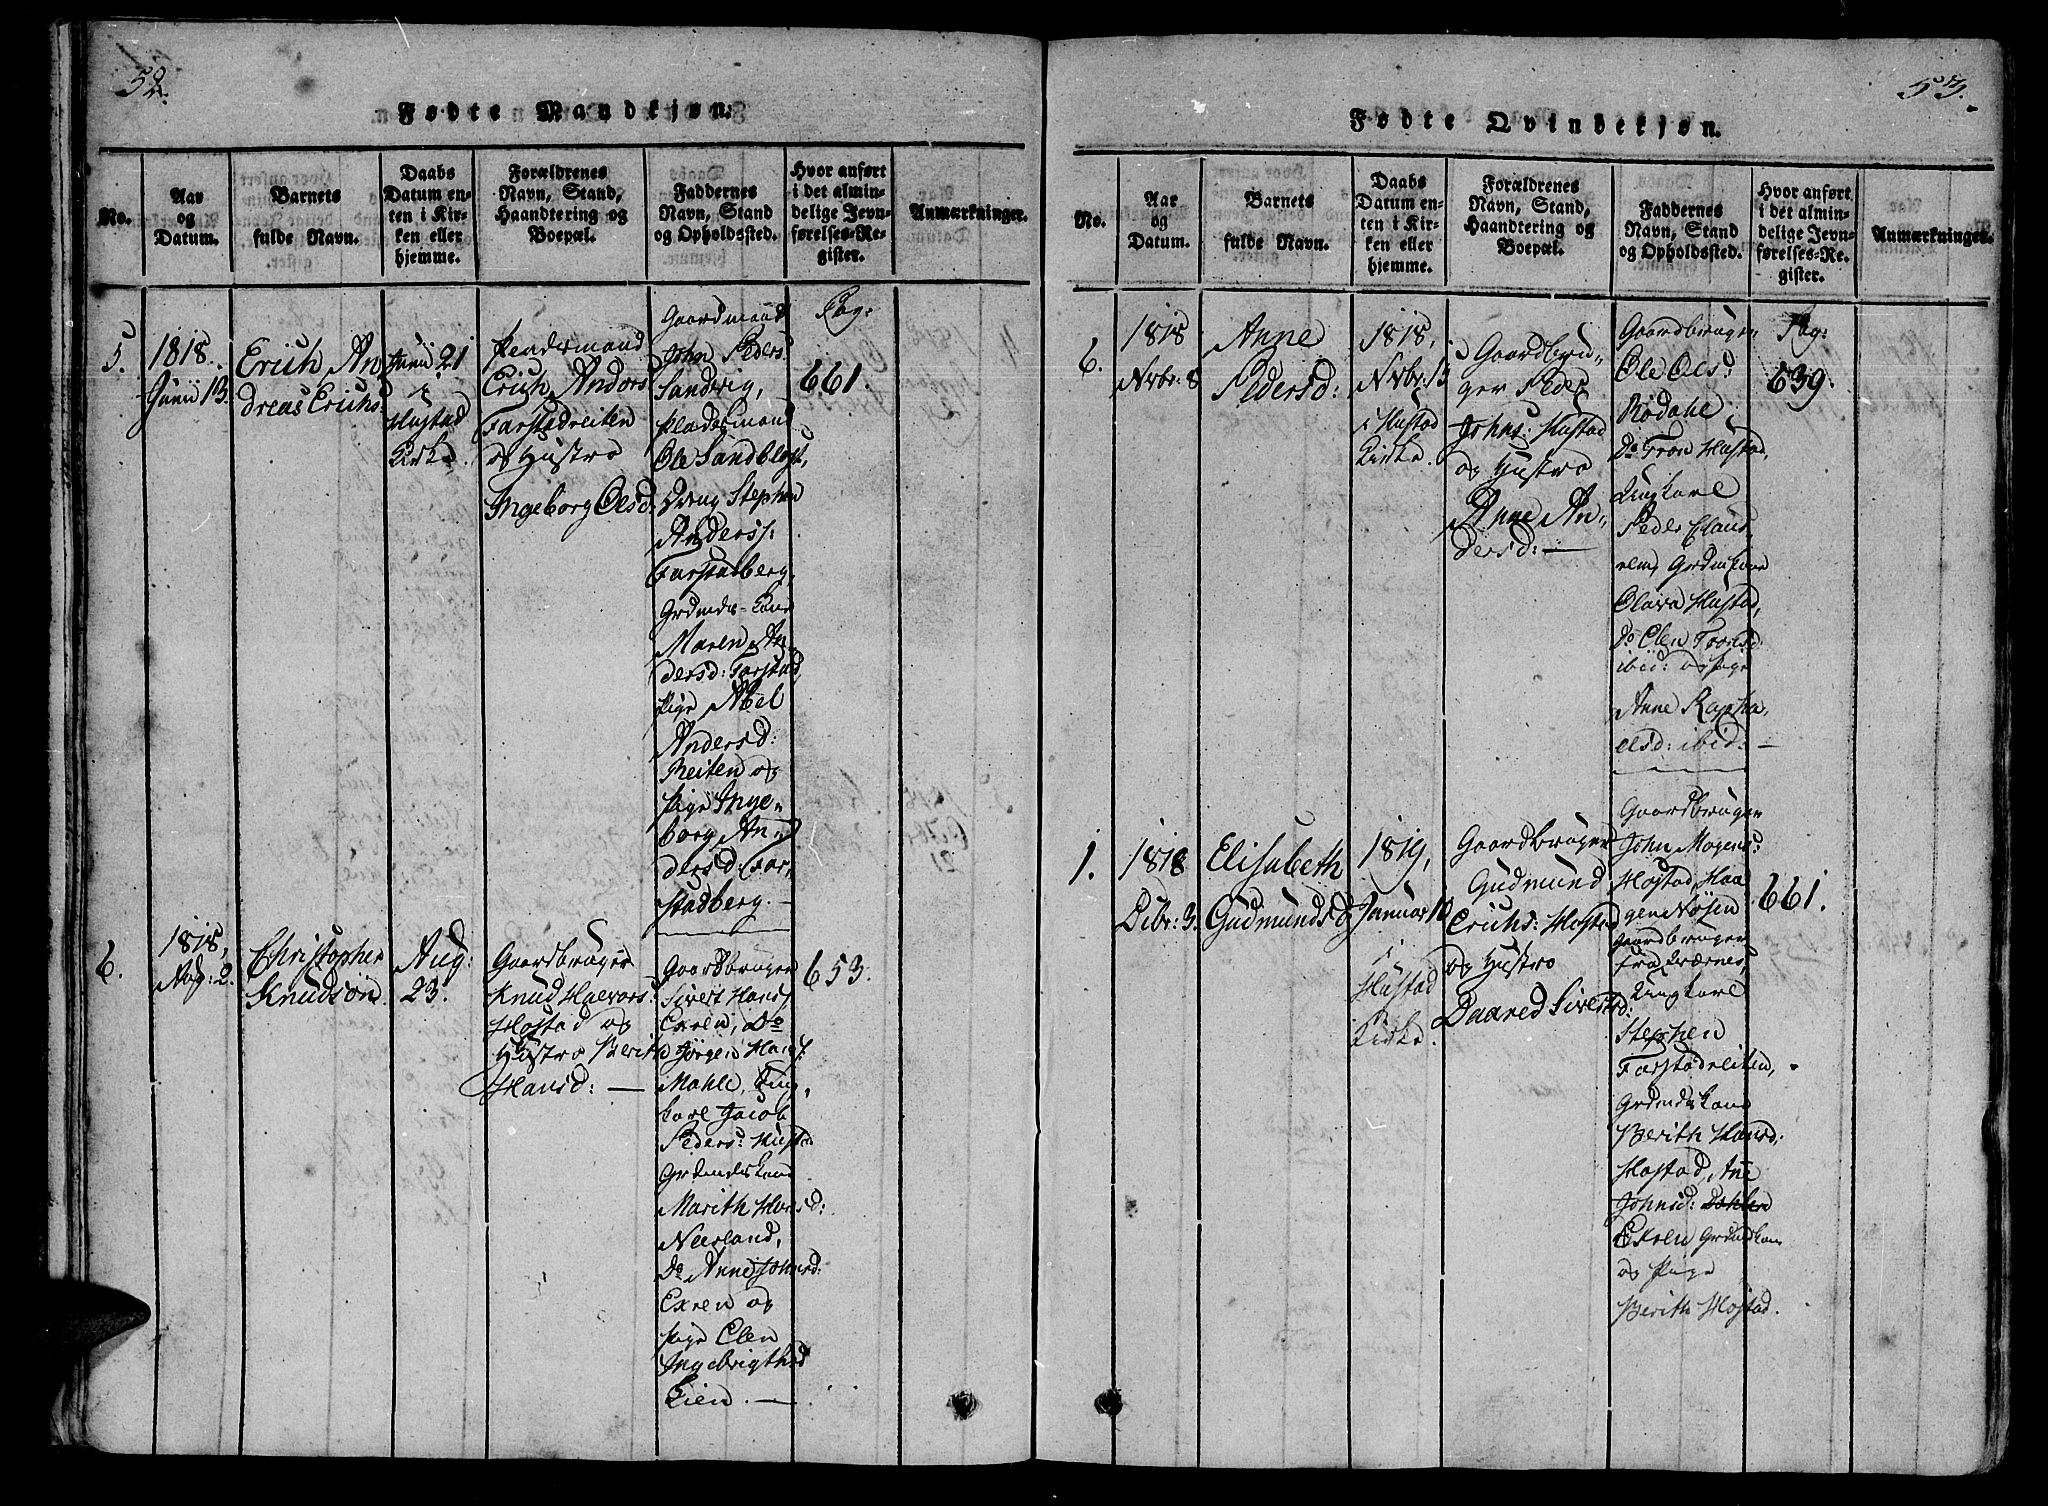 52.
Fødte Mandkjøn.
No.
Aar
og
Datum.
Barnets
fulde Navn.
Daabs
Datum en-
ten i Kir-
ken eller
hjemme.
Forældrenes
Navn, Stand,
Haandtering og
Boepæl.
Faddernes
Navn, Stand
og Opholdssted.
Hvor anført
i det almin-
delige Jevn-
førelses-Re-
gister.
Anmærkninger.
5.
1818.
Junii 13.
Erich An
dreas Erichs:
Junii 21
i
Hustad
Kirke.
Pladsmand
Erich Anders
Farstadreiten
og Hustro
Ingeborg Olsd:
Gaardmand
John Peders:
Sandvig,
Pladsmand
Ole Sandblost,
Dreng Stephen
Anderss:
Farstadberg,
Grdmds-Kone
Maren An
dersd: Farstad,
Pige Abel
Andersd:
Reiten og
Pige Inge-
borg An-
dersd: Far,
stadberg.
Pag:
661.
6.
1818,
Aug: 2.
Christopher
Knudsøn.
Aug:
23.
Gaardbruger
Knud Halvors:
Hostad og
Hustro Berith
Hansd:
Gaardbruger
Sivert Hans:
Exren, Do
Jørgen Hans:
Mahle, Ung,
karl Jacob
Peders: Hustad
Grdmds Kone
Marith Hansd:
Neerland,
Do Anne Johnsd:
Exren og
Pige Elen
Ingebrigthsd
Lien.
653.
53.
Fødte Qvindekjøn.
No.
Aar
og
Datum.
Barnets
fulde Navn.
Daabs
Datum en-
ten i Kir-
ken eller
hjemme.
Forældrenes
Navn, Stand,
Haandtering og
Boepæl.
Faddernes
Navn, Stand
og Opholdssted.
Hvor anført
i det almin-
delige Jevn-
førelses-Re-
gister.
Anmærkninger.
6.
1818
Nvbr: 8
Anne
Pedersd:
1818,
Nvbr: 13
i Hustad
Kirke.
Gaardbru-
ger Peder
Johns: Hustad
og Hustro
Anne An-
dersd:
Gaardbruger
Ole Ols:
Rødahl
Do Tron Hustad,
Ungkarl
Peder Claus
Olava Hustad,
Do Elen Tronsd:
ibid: og Pige
Anne Rapha,
elsd: ibid:
Pag:
639.
1.
1818
Dcbr: 3.
Elisabeth
Gudmundsd:
1819,
Januar 10
i
Hustad
Kirke.
Gaardbruger
Gudmund
Erichs: Hostad
og Hustro
Daared Sivertsd:
Gaardbruger
John Mogens:
Hostad, Haa
gen Nøsen
Gaardbruger
fra Qværnes,
Ungkarl
Stephen
Farstadreiten,
Grdmds Kone
Berith Hansd:
Hostad, Ane
Johnsd:
Exren Grdmdkone
og Pige
Berith Hostad.
661.